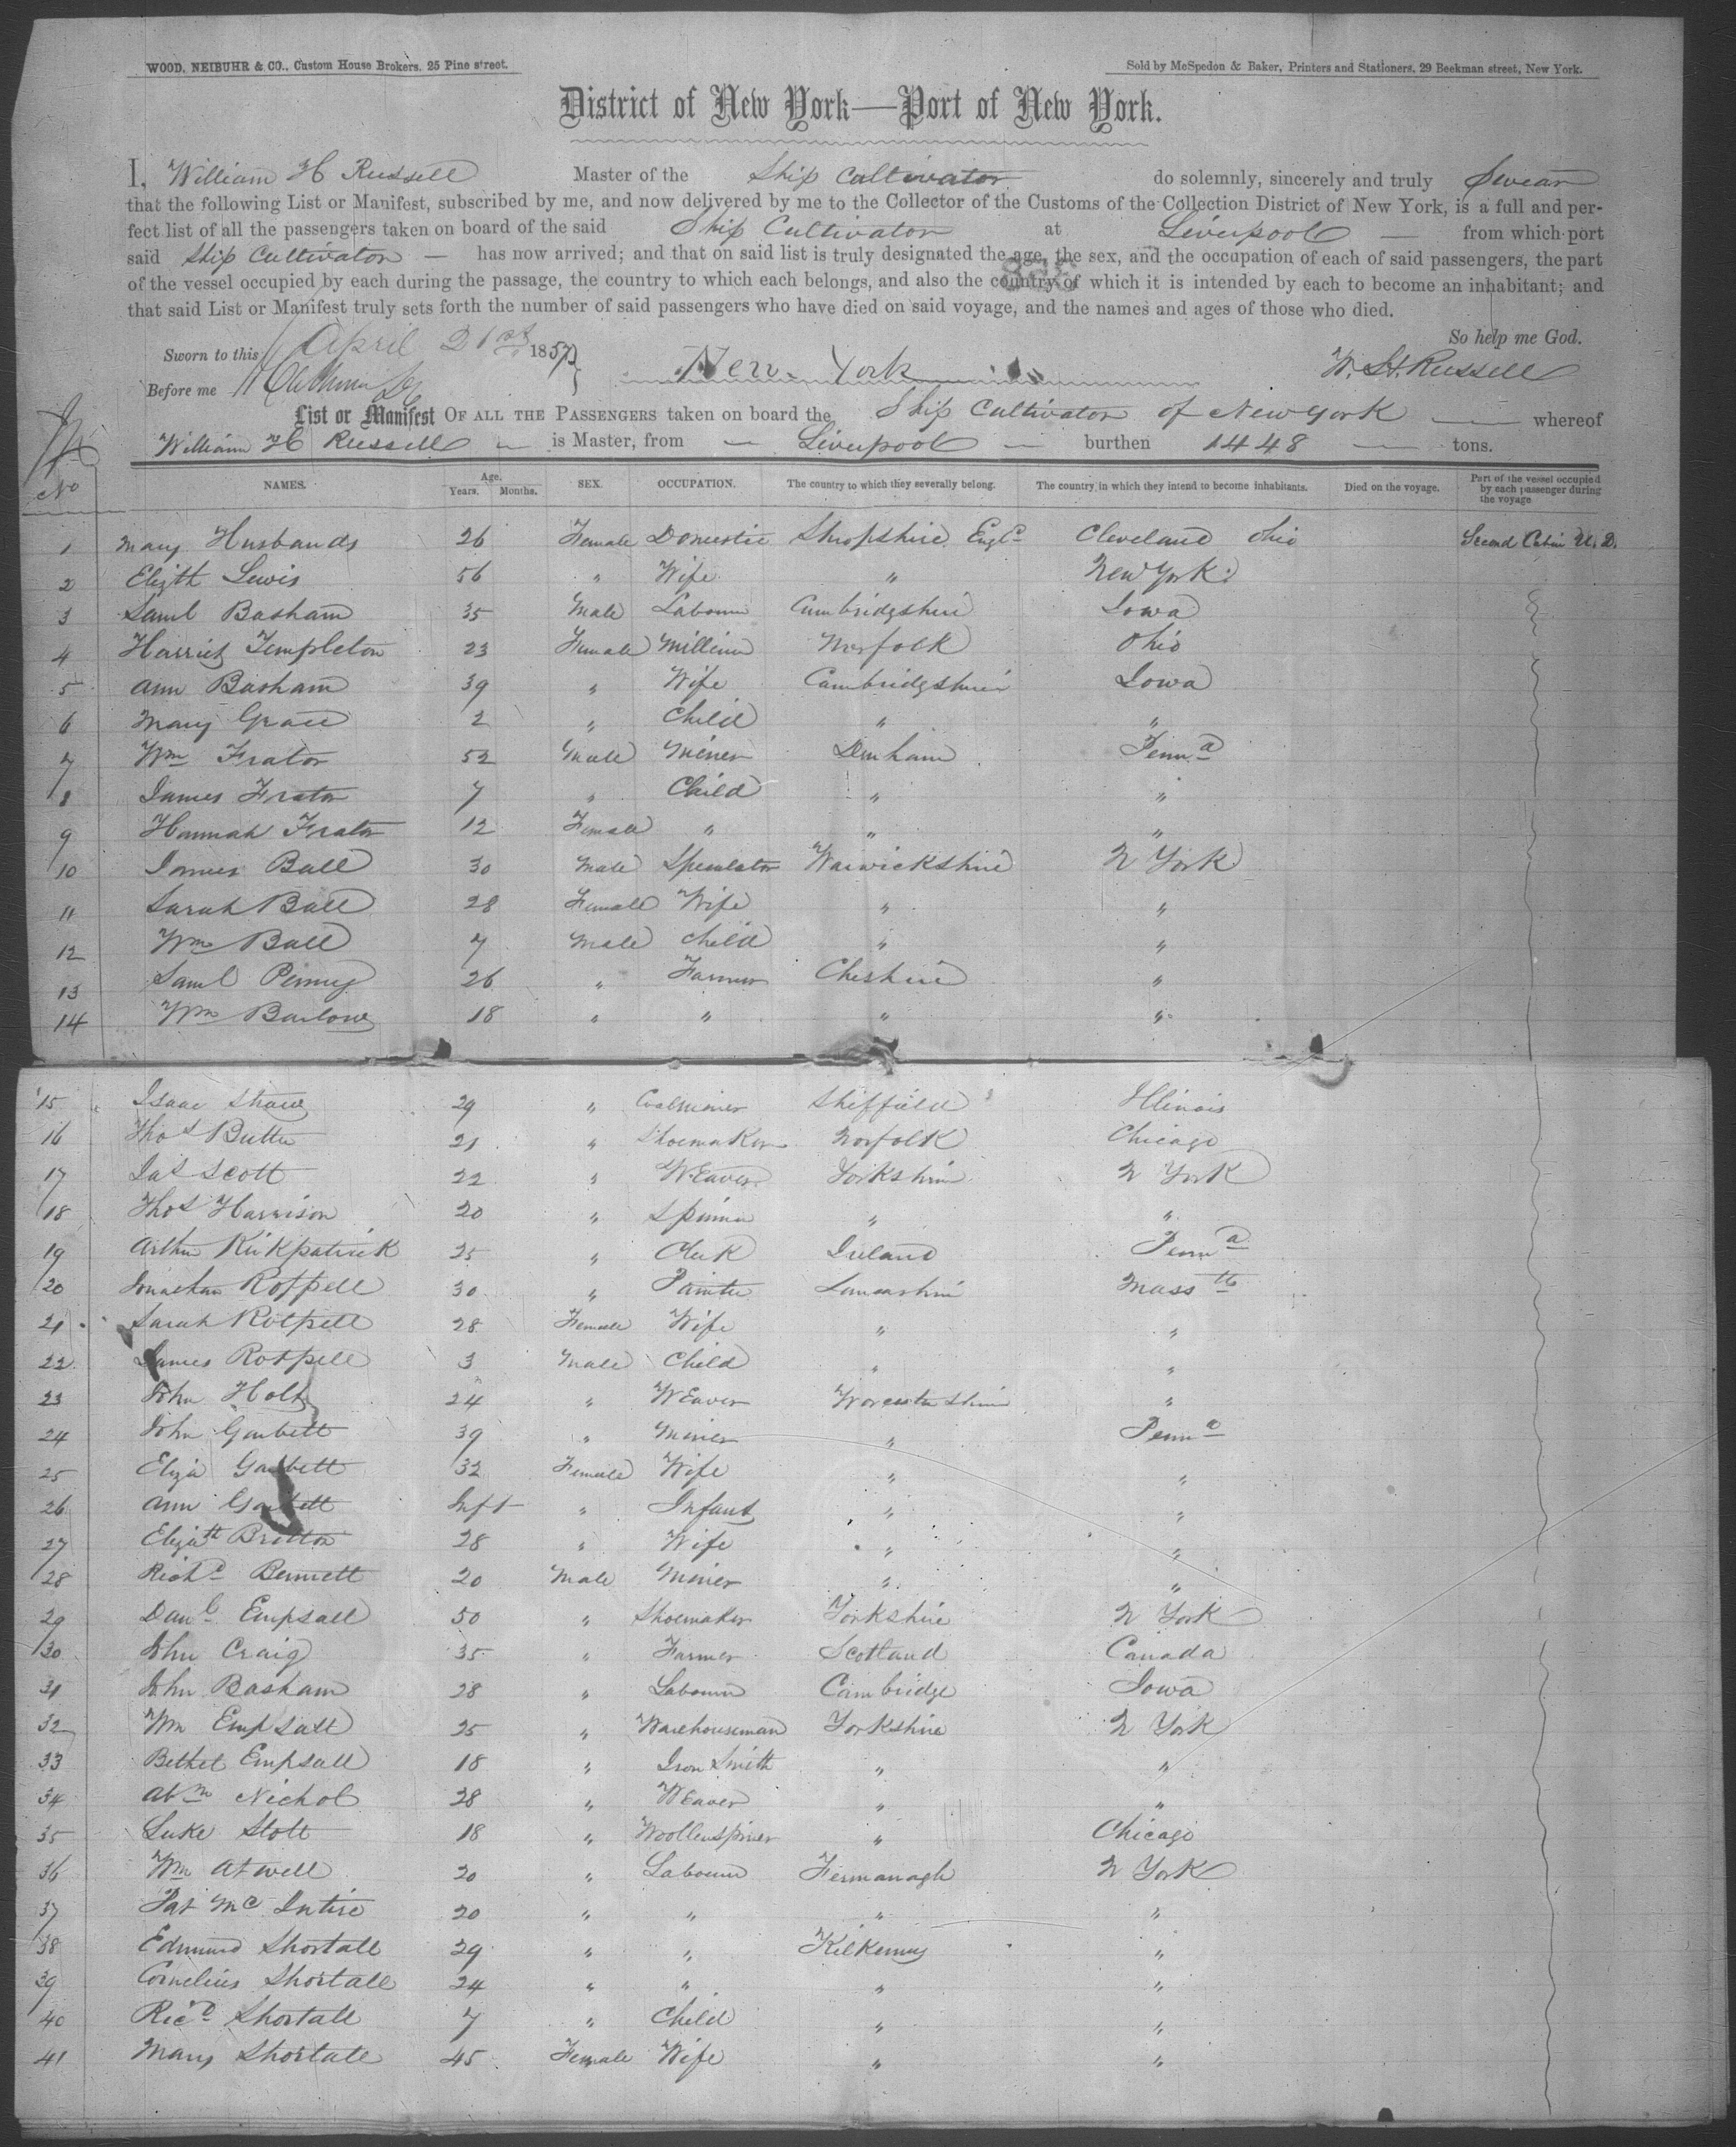 WOOD, NEIBUHR & CO., Custom House Brokers, 25 Pine street.
Sold by McSpedon & Baker, Printers and Stationers, 29 Beekman street, New York.
District of New York—Port of New York.
I, William H Russell Master of the Ship Cultivator do solemnly, sincerely and truly Swear
that the following List or Manifest, subscribed by me, and now delivered by me to the Collector of the Customs of the Collection District of New York, is a full and per-
fect list of all the passengers taken on board of the said Ship Cultivator at Liverpool — from which port
said Ship Cultivator — has now arrived; and that on said list is truly designated the age, the sex, and the occupation of each of said passengers, the part
of the vessel occupied by each during the passage, the country to which each belongs, and also the country of which it is intended by each to become an inhabitant; and
that said List or Manifest truly sets forth the number of said passengers who have died on said voyage, and the names and ages of those who died.
So help me God.
Sworn to this April 21st 1857
New York W. H. Russell
Before me
List or Manifest OF ALL THE PASSENGERS taken on board the Ship Cultivator of New York — whereof
William H Russell — is Master, from — Liverpool — burthen 1448 — tons.
No NAMES. Age. Years. Months. SEX. OCCUPATION. The country to which they severally belong. The country in which they intend to become inhabitants. Died on the voyage. Part of the vessel occupied by each passenger during the voyage
1 Mary Husbands 26 Female Domestic Shropshire Engd Cleveland Ohio Second Cabin U. D.
2 Elizth Lewis 56 " Wife " New York
3 Saml Basham 35 Male Labourer Cambridgshire Iowa
4 Harriet Templeton 23 Female Milliner Norfolk Ohio
5 Ann Basham 39 " Wife Cambridgshire Iowa
6 Mary Grace 2 " Child " "
7 Wm Frator 52 Male Miner Durham Penna
8 James Frator 7 " Child " "
9 Hannah Frator 12 Female " " "
10 James Ball 30 Male Speculator Warwickshire N York
11 Sarah Ball 28 Female Wife " "
12 Wm Ball 7 Male Child " "
13 Saml Penny 26 " Farmer Cheshire "
14 Wm Barlow 18 " " " "
15 Isaac Shaw 29 " Coalminer Sheffield Illinois
16 Thos Butter 21 " Shoemaker Norfolk Chicago
17 Jas Scott 22 " Weaver Yorkshire N York
18 Thos Harrison 20 " Spinner " "
19 Arthur Kirkpatrick 25 " Clerk Ireland Penna
20 Jonathan Rotpell 30 " Painter Lancashire Massts
21 Sarah Rotpell 28 Female Wife " "
22 James Rotpell 3 Male Child " "
23 John Holt 24 " Weaver Worcestershire "
24 John Garbett 39 " Miner " Penna
25 Eliza Garbett 32 Female Wife " "
26 Ann Garbett Inft " Infant " "
27 Elizath Britton 28 " Wife " "
28 Richd Bennett 20 Male Miner " "
29 Danl Empsall 50 " Shoemaker Yorkshire N York
30 John Craig 35 " Farmer Scotland Canada
31 John Basham 28 " Labourer Cambridge Iowa
32 Wm Empsall 25 " Warehouseman Yorkshire N York
33 Bethel Empsall 18 " Iron Smith " "
34 Abm Nichol 28 " Weaver " "
35 Luke Stott 18 " Woollenspiner " Chicago
36 Wm Atwell 20 " Labourer Fermanagh N York
37 Pat McIntire 20 " " " "
38 Edmund Shortall 29 " " Kilkenny "
39 Cornelius Shortall 24 " " " "
40 Ricd Shortall 7 " Child " "
41 Mary Shortall 45 Female Wife " "